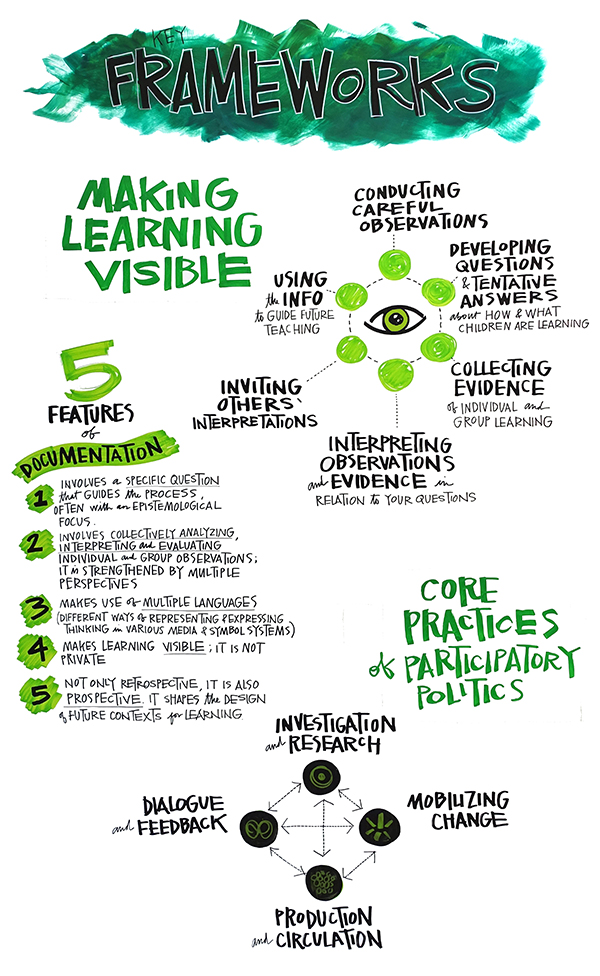 KEY
FRAMEWORKS
MAKING
LEARNING
VISIBLE
CONDUCTING
CAREFUL
OBSERVATIONS
DEVELOPING
QUESTIONS
& TENTATIVE
ANSWERS
about HOW & WHAT
CHILDREN ARE LEARNING
COLLECTING
EVIDENCE
of INDIVIDUAL and
GROUP LEARNING
INTERPRETING
OBSERVATIONS
and EVIDENCE in
RELATION to YOUR QUESTIONS
INVITING
OTHERS'
INTERPRETATIONS
USING
the INFO
to GUIDE FUTURE
TEACHING
5
FEATURES
of
DOCUMENTATION
1 INVOLVES a SPECIFIC QUESTION
that GUIDES the PROCESS,
OFTEN with an EPISTEMOLOGICAL
FOCUS.
2 INVOLVES COLLECTIVELY ANALYZING,
INTERPRETING and EVALUATING
INDIVIDUAL and GROUP OBSERVATIONS;
IT is STRENGTHENED BY MULTIPLE
PERSPECTIVES
3 MAKES USE of MULTIPLE LANGUAGES
(DIFFERENT WAYS of REPRESENTING & EXPRESSING
THINKING in VARIOUS MEDIA & SYMBOL SYSTEMS)
4 MAKES LEARNING VISIBLE; IT IS NOT
PRIVATE
5 NOT ONLY RETROSPECTIVE, IT IS ALSO
PROSPECTIVE. IT SHAPES the DESIGN
of FUTURE CONTEXTS for LEARNING
CORE
PRACTICES
of PARTICIPATORY
POLITICS
INVESTIGATION
and RESEARCH
DIALOGUE
and FEEDBACK
MOBILIZING
CHANGE
PRODUCTION
and CIRCULATION